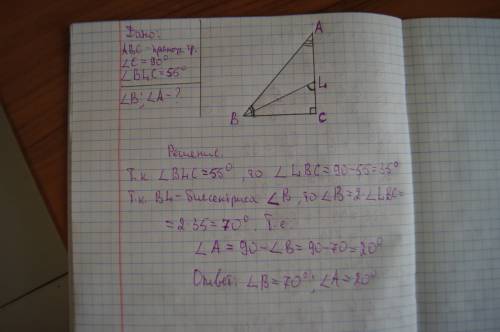 Дано:
ABC - прямоуг. тр.
∠C = 90°
∠BLC = 55°
∠B; ∠A - ?
A
L
B
C
Решение.
Т.к. ∠BLC = 55°, то ∠LBC = 90-55 = 35°
Т.к. BL - биссектриса ∠B, то ∠B = 2·∠LBC =
= 2·35 = 70°. Т.е.
∠A = 90 - ∠B = 90-70 = 20°
Ответ: ∠B = 70°; ∠A = 20°